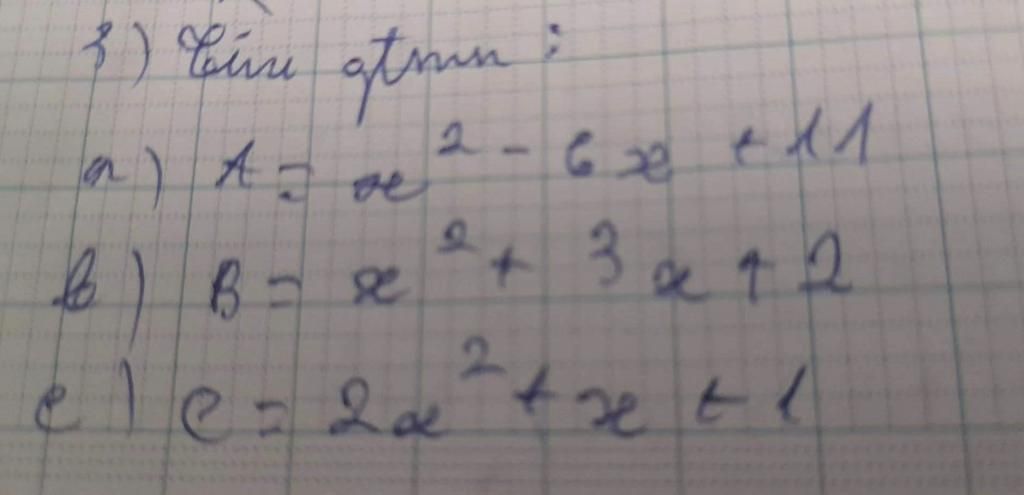 3) Tìm gtnn :
a) A = x² - 6x + 11
b) B = x² + 3x + 2
c) C = 2x² + x + 1